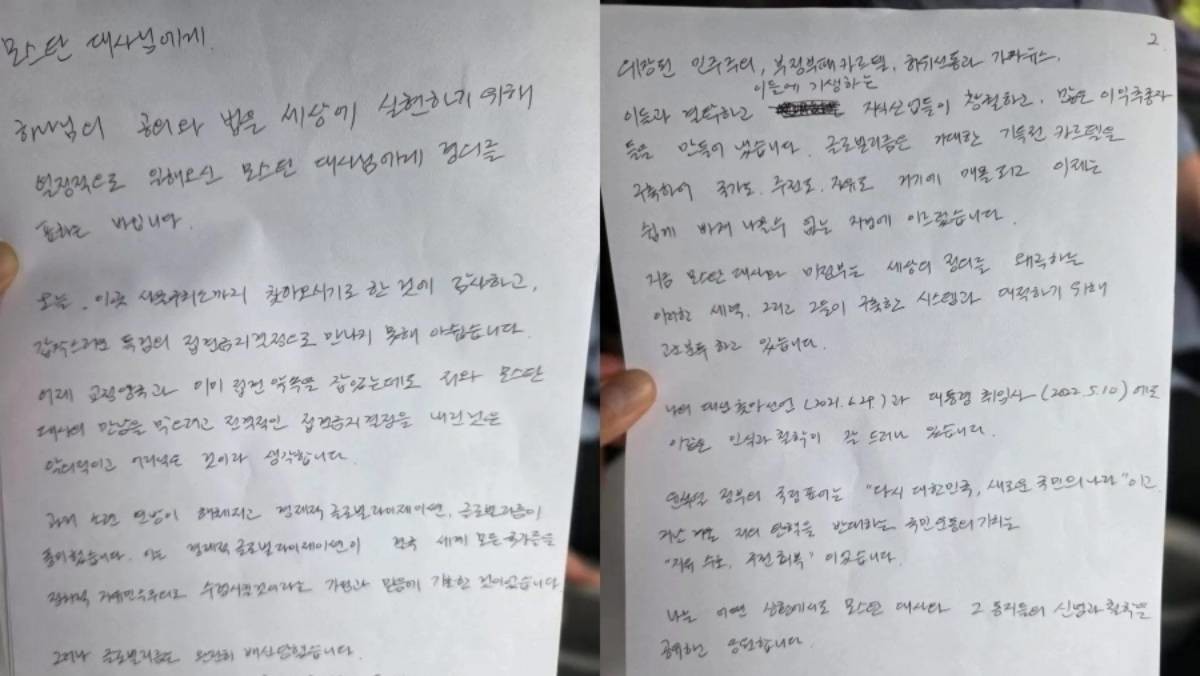 모스탄 대사님에게.
하나님의 공의와 법을 세상에 실현하기 위해
열정적으로 일해오신 모스탄 대사님에게 경의를
표하는 바입니다.
오늘, 이곳 서울구치소까지 찾아오시기로 한 것에 감사하고,
갑작스러운 특검의 접견금지결정으로 만나지 못해 아쉽습니다.
어제 교정당국과 이미 접견 약속을 잡았는데도 저와 모스탄
대사의 만남을 막으려고 전격적인 접견금지결정을 내린 것은
악의적이고 어리석은 것이라 생각합니다.
과거 소련 연방이 해체되고 경제적 글로벌라이제이션, 글로벌리즘이
풍미했습니다. 이는 경제적 글로벌라이제이션이 전 세계 모든 국가들을
정치적 자유민주주의로 수렴시킬 것이라는 가정과 믿음에 기초한 것이었습니다
그러나 글로벌리즘은 완전히 배신당했습니다.
2.
위장된 민주주의, 부정부패 카르텔, 허위선동과 가짜뉴스,
이들에 기생하는
이들과 결탁하고 지식산업들이 창궐하고, 많은 이익추종자
들을 만들어 냈습니다. 글로벌리즘은 거대한 기득권 카르텔을
구축하여 국가도, 주권도, 자유도 거기에 매몰되고 이제는
쉽게 빠져 나올 수 없는 지경에 이르렀습니다.
지금 모스탄 대사와 미정부는 세상의 정의를 왜곡하는
이러한 세력, 그리고 그들이 구축한 시스템과 대적하기 위해
고군분투 하고 있습니다.
나의 대선출마선언(2021.6.29.)과 대통령 취임사(2022.5.10)에도
이같은 인식과 철학이 잘 드러나 있습니다.
윤석열 정부의 국정 표어는 "다시 대한민국, 새로운 국민의 나라"이고
지난 겨울 저의 탄핵을 반대하는 국민운동의 기치는
"자유 수호, 주권 회복"이었습니다.
나는 어떤 상황에서도 모스탄 대사와 그 동지들의 신념과 철학을
공유하고 응원합니다.